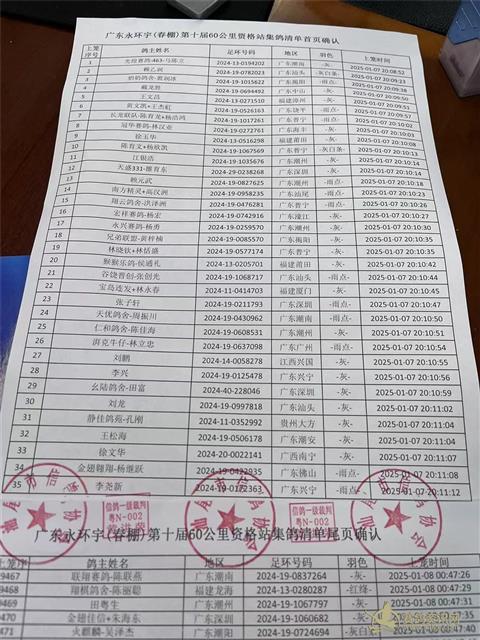 广东永环宇(春棚)第十届60公里资格站集鸽清单首页确认
上笼序号 鸽主姓名 足环号码 地区 羽色 上笼时间
1 2024-13-0194202 广东潮南 -灰- 2025-01-07 20:08:52
2 赖乙润 2024-19-0782023 广东汕头 -灰白条- 2025-01-07 20:09:23
3 2024-19-1015622 广东揭阳 -雨点- 2025-01-07 20:09:38
4 戴龙胜 2024-19-0694492 广东中山 -灰-
5 王文昌 2024-13-0271510 福建漳州 -灰- 2025-01-07 20:09:51
6 黄文凯+王杰虹 2024-19-0526163 广东饶平 -雨点- 2025-01-07 20:09:57
7 长龙联队-陈育龙+杨浩鸿 2024-19-1017261 广东普宁 -雨点-
8 冠华赛鸽-林汉亚 2024-19-0272761 广东海丰 -灰- 2025-01-07 20:10:08
9 徐玉华 2024-13-0516298 福建莆田 -灰-
10 陈育文+杨欣凯 2024-19-1067569 广东普宁 -灰白条- 2025-01-07 20:10:13
11 江银浩 2024-19-1035676 广东潮州 -灰- 2025-01-07 20:10:14
12 天盛331-雅育东 2024-29-0238268 广东深圳 -灰- 2025-01-07 20:10:18
13 赖元武 2024-19-0827625 广东潮南 -雨点- 2025-01-07 20:10:20
14 南方精灵+高汉洲 2024-19-0958235 广东汕尾 -雨点- 2025-01-07 20:10:23
15 翔云鸽舍-洪泽洲 2024-19-0476281 广东普宁 -雨点- 2025-01-07 20:10:26
16 宏祥赛鸽-杨宏 2024-19-0742916 广东濠江 -灰- 2025-01-07 20:10:27
17 永兴赛鸽-杨勇 2024-19-0259570 广东潮州 -灰- 2025-01-07 20:10:30
18 兄弟联盟-黄梓楠 2024-19-0085570 广东揭阳 -灰- 2025-01-07 20:10:35
19 林晓钦+林恬盛 2024-19-0577174 广东普宁 -灰- 2025-01-07 20:10:35
20 猴猴乐鸽-侯通礼 2024-13-0205701 福建莆田 -灰- 2025-01-07 20:10:42
21 谷饶晋创-张创光 2024-19-1068717 广东汕头 -雨点- 2025-01-07 20:10:44
22 宝岛连发+林永春 2024-11-0414703 福建厦门 -灰- 2025-01-07 20:10:45
23 张子轩 2024-19-0211793 广东深圳 -雨点- 2025-01-07 20:10:47
24 天优鸽舍-周振川 2024-19-0430962 广东潮南 -雨点- 2025-01-07 20:10:50
25 仁和鸽舍-陈佳海 2024-19-0608531 广东潮州 -灰- 2025-01-07 20:10:51
26 湃克牛仔-林立忠 2024-19-0637098 广东广州 -雨点- 2025-01-07 20:10:54
27 刘鹏 2024-14-0058278 江西兴国 -灰- 2025-01-07 20:10:55
28 李兴 2024-19-0125478 广东兴宁 -灰- 2025-01-07 20:10:56
29 幺陆鸽舍-田富 2024-40-228046 广东深圳 -灰- 2025-01-07 20:10:59
30 刘龙 2024-19-0997818 广东汕头 -灰- 2025-01-07 20:11:02
31 静佳鸽苑-孔刚 2024-11-0352992 贵州大方 -灰- 2025-01-07 20:11:04
32 王松海 2024-19-0506178 广东潮安 -灰- 2025-01-07 20:11:04
33 徐文华 2024-20-0022141 广西南宁 -灰- 2025-01-07 20:11:07
34 金翅翱翔-杨继跃 2024-19-0422935 广东佛山 -雨点- 2025-01-07 20:11:08
35 李尧新 2024-19-0122363 广东兴宁 -雨点- 2025-01-07 20:11:12
信鸽一级裁判
粤N-002
广东永环宇(春棚)第十届60公里资格站集鸽清单尾页确认
上笼序 鸽主姓名 地区 足环号码 羽色 上笼时间
9467 联翔赛鸽-陈联燕 广东潮南 2024-19-0837264 -灰- 2025-01-08 00:47:26
9468 翔棋鸽舍-陈丽聪 福建龙海 2024-13-0280287 -红绛- 2025-01-08 00:47:29
9469 田粤生 广东潮州 2024-19-1067797 -灰- 2025-01-08 00:47:31
470 金福佳佳+朱海东 广东深圳 2024-19-1060682 -灰- 2025-01-08 00:47:35
471 永麒麟-吴泽杰 广东潮州 2024-19-0724694 -灰白条- 2025-01-08 00:47:40